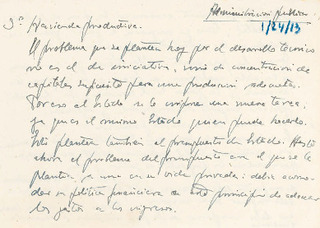 Administración pública
1/24/13
3º Hacienda productiva.
El problema que se plantea hoy por el desarrollo técnico
no es el de iniciativa, sino de concentración de
capitales supuesto para una producción adecuada.
Por eso al Estado se le impone una nueva tarea,
ya que es el mismo Estado quien puede hacerlo.
Esto plantea también el presupuesto de Estado. Hasta
ahora el problema del presupuesto con el que se le
plantea a uno en su vida privada: debía acomodar
su política financiera a este principio de adecuar
los gastos a los ingresos.